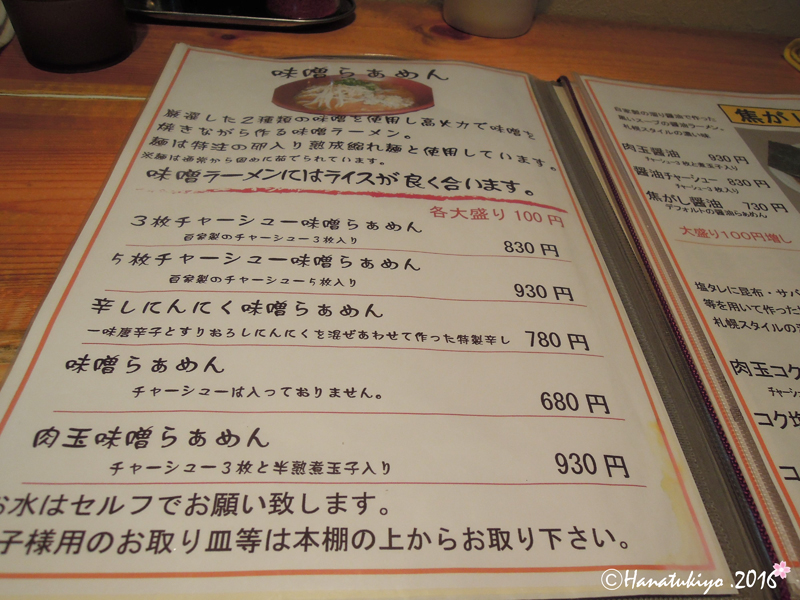 味噌らぁめん
厳選した2種類の味噌を使用し高火力で味噌を
焼きながら作る味噌ラーメン。
麺は特注の卵入り熟成縮れ麺を使用しています。
※麺は通常から固めで茹でられています。
味噌ラーメンにはライスが良く合います。
各大盛り100円
3枚チャーシュー味噌らぁめん
自家製のチャーシュー3枚入り
830円
5枚チャーシュー味噌らぁめん
自家製のチャーシュー5枚入り
930円
辛しにんにく味噌らぁめん
一味唐辛子とすりおろしにんにくを混ぜあわせて作った特製辛し
780円
味噌らぁめん
チャーシューは入っておりません。
680円
肉玉味噌らぁめん
チャーシュー3枚と半熟煮玉子入り
930円
お水はセルフでお願い致します。
子様用のお取り皿等は本棚の上からお取り下さい。
焦がし
自家製の揚げ醤油で作った
黒いスープの醤油ラーメン。
札幌スタイルの濃い味
肉玉醤油 930円
チャーシュー3枚と煮玉子入り
醤油チャーシュー 830円
チャーシュー3枚入り
焦がし醤油 730円
デフォルトの醤油らぁめん
大盛り100円増し
塩タレに昆布・サバ
等を用いて作った
札幌スタイルの
肉玉コク
チャーシュ
コク塩
コ
©Hanatukiyo .2016